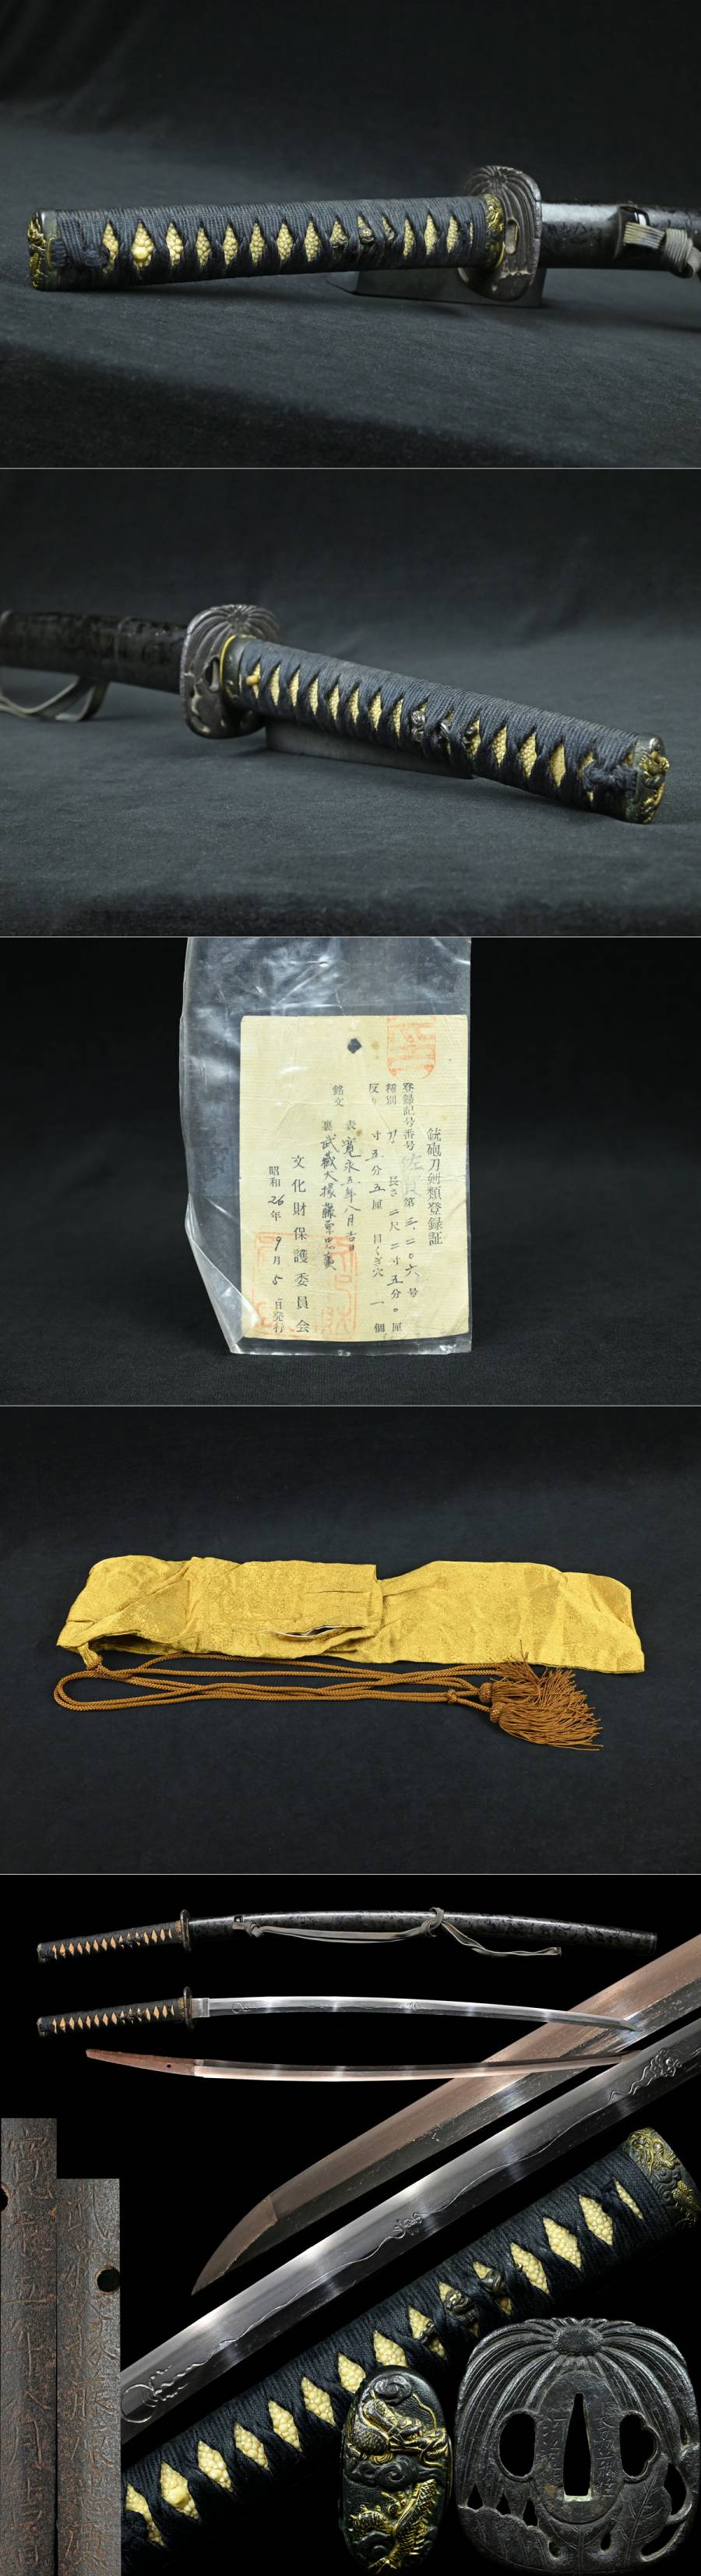 銃砲刀剣類登録証
登録記号番号 佐賀 第 三二〇六 号
種別 刀 長さ 二尺 二寸 五分 〇厘
反り 寸 五分 五厘 目くぎ穴 一個
銘文 表 寛永五年八月吉日
裏 武藏大掾藤原忠廣
文化財保護委員会
昭和 26年 9月 5日発行
寛永五年八月吉